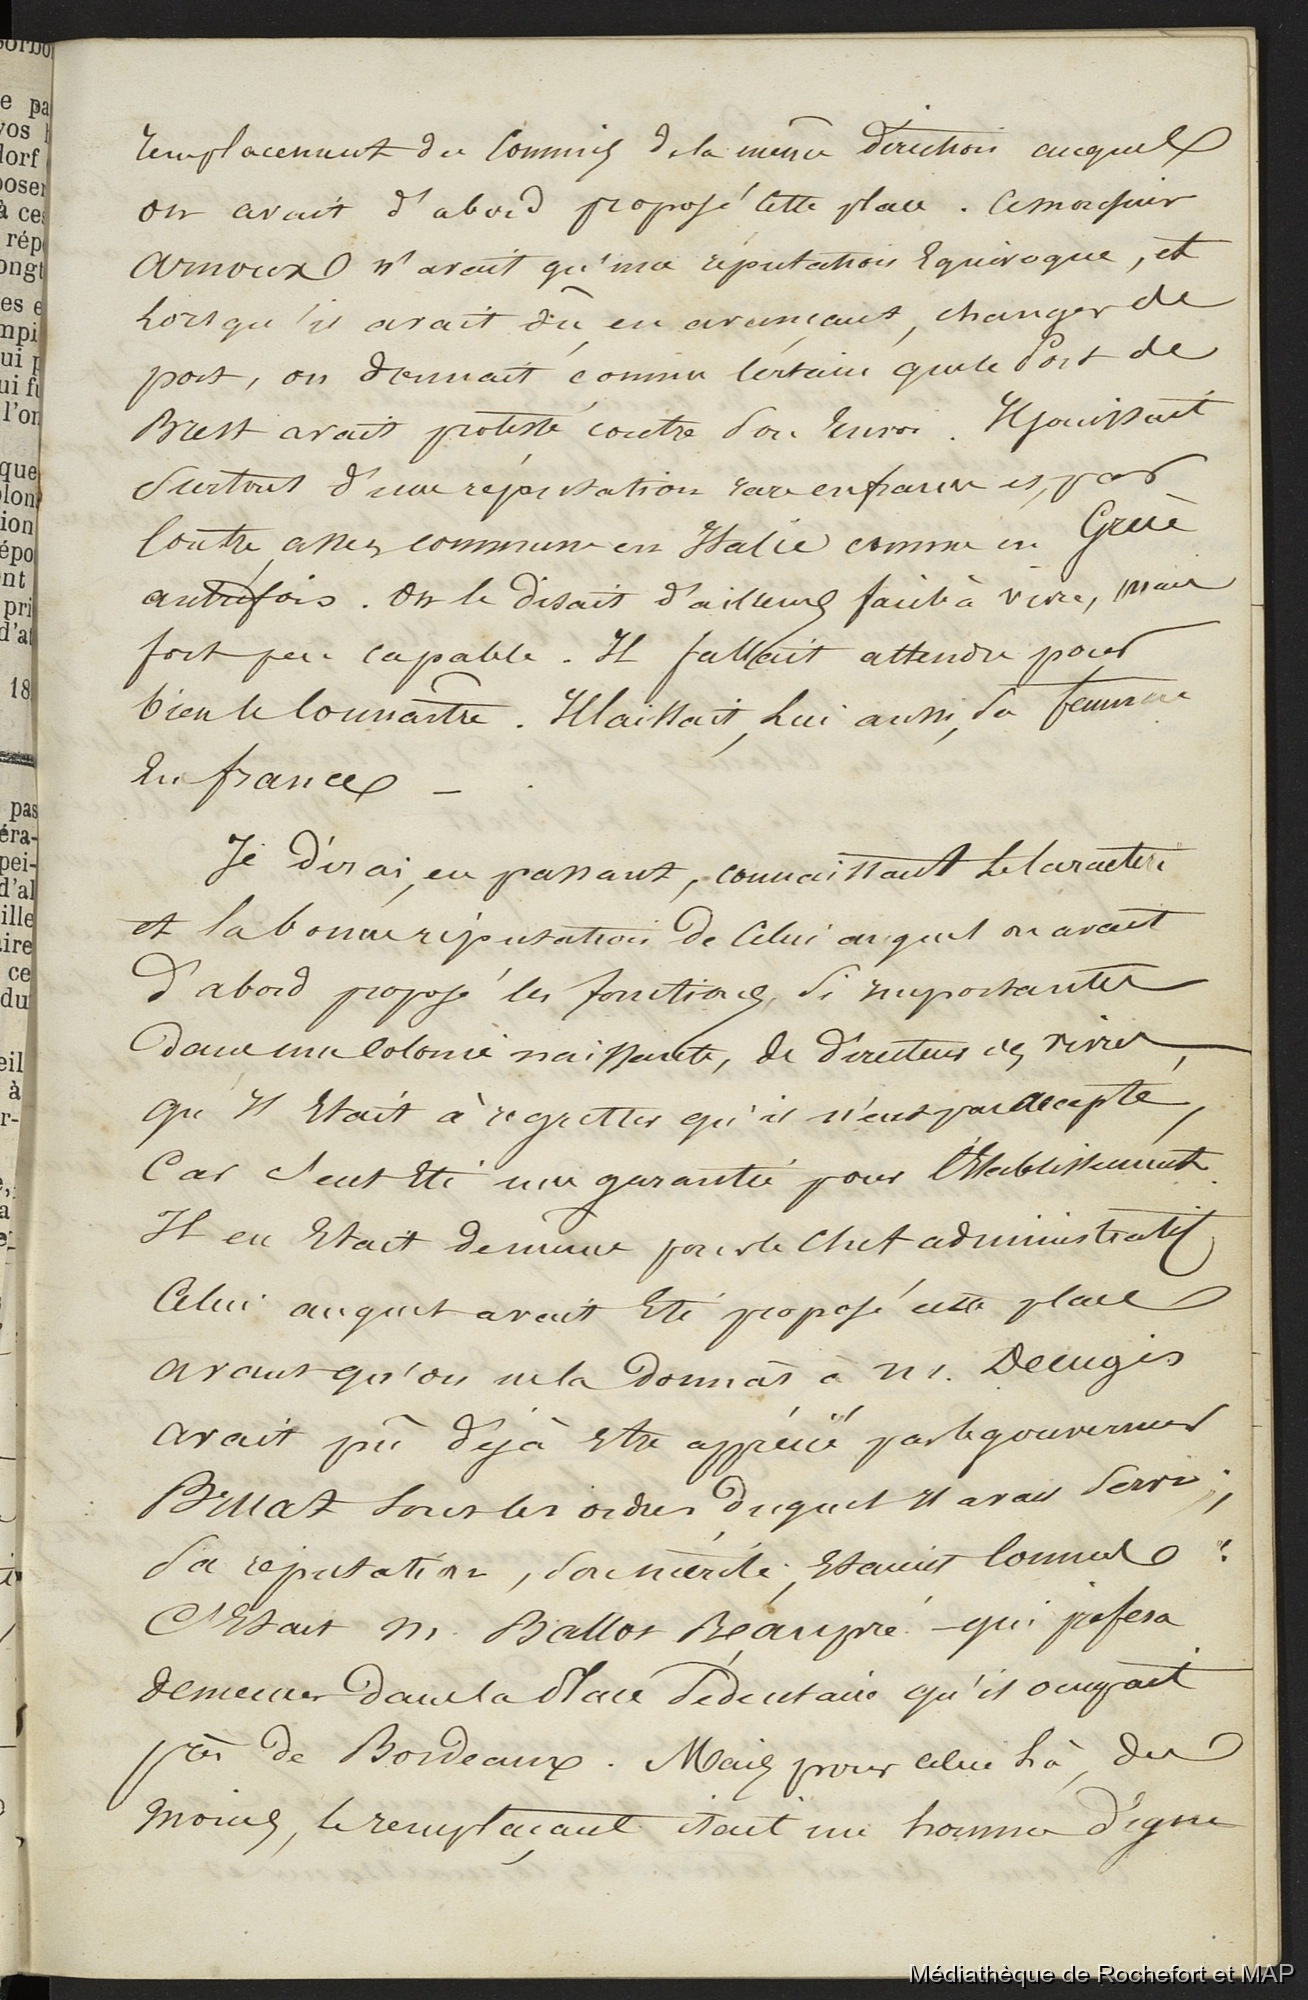 remplacement du Commis de la même direction auquel
on avait d'abord proposé cette place. Ce monsieur
Arnoux n'avait qu'une réputation Equivoque, et
lorsqu'il avait dû, en avançant, changer de
port, on donnait comme certain que le Port de
Brest avait protesté contre son Envoi. Il jouissait
surtout d'une réputation rare en france et, par
contre, assez commune en Italie comme en Grèce
autrefois. On le disait d'ailleurs facile à vivre, mais
fort peu capable. Il fallait attendre pour
bien le connaître. Il laissait, lui aussi, sa femme
En france —
Je dirai, en passant, connaissant le caractère
et la bonne réputation de celui auquel on avait
d'abord proposé les fonctions, si importantes
dans une Colonie naissante, de directeur des vivres,
qu'il Etait à regretter qu'il n'eut pas accepté,
Car c'eut Eté une garantie pour l'Etablissement.
Il en Etait de même pour le Chef administratif
Celui auquel avait Eté proposé cette place
avant qu'on ne la donnât à M. Deaugis
avait pû déjà Etre apprécié par le gouverneur
Bruat sous les ordres duquel il avait servi;
sa réputation, son mérite, Etaient connus:
C'Etait M. Ballot Beaupré - qui préféra
demeurer dans la Place sédentaire qu'il occupait
près de Bordeaux. Mais pour celui là, du
moins, le remplaçant était un homme digne
Médiathèque de Rochefort et MAP